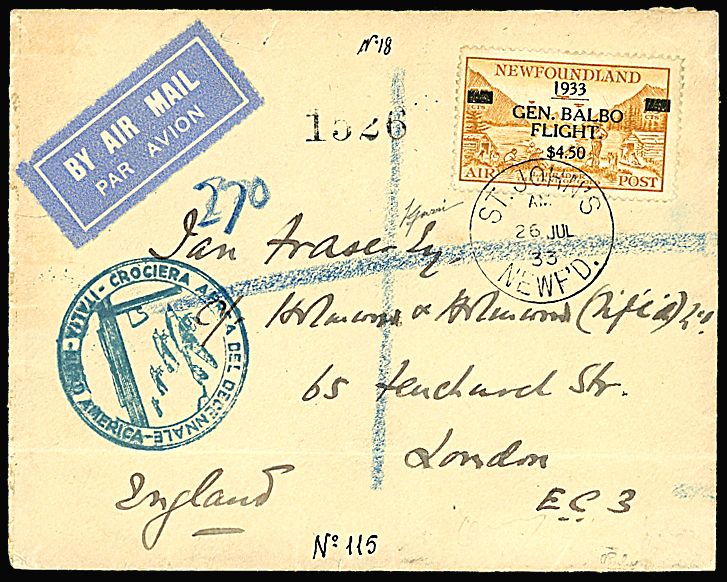 Nº 18
BY AIR MAIL
PAR AVION
1526
NEWFOUNDLAND
1933
GEN. BALBO
FLIGHT.
$4.50
AIR POST
270
ST. JOHN'S
AM
26 JUL
33
NEWF'D.
Ian Fraser Esq.
CROCIERA AEREA DEL DECENNALE - NORD AMERICA - ITALIA -
c/o Holmwood & Holmwood Ld.
65 Fenchurch Str.
London
England
E.C.3
Nº 115